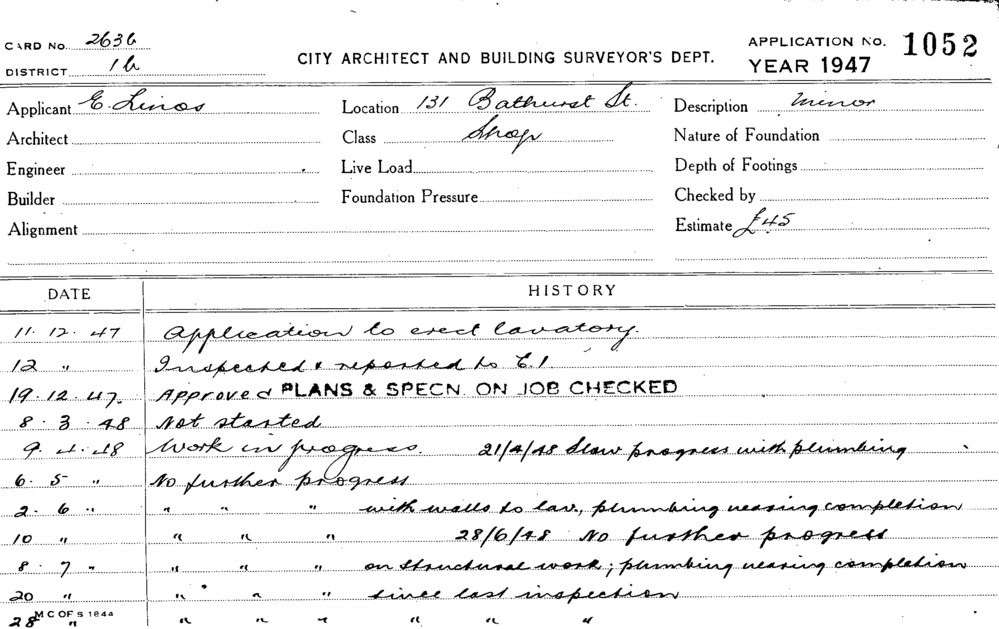 CARD No. 2636
DISTRICT 1b
CITY ARCHITECT AND BUILDING SURVEYOR'S DEPT.
APPLICATION No. 1052
YEAR 1947
Applicant E. Linos Location 131 Bathurst St. Description Minor
Architect Class Shop Nature of Foundation
Engineer Live Load Depth of Footings
Builder Foundation Pressure Checked by
Alignment Estimate £45
DATE HISTORY
11. 12. 47 Application to erect lavatory.
12 " Inspected & reported to E.I.
19. 12. 47. Approved PLANS & SPECN. ON JOB CHECKED
8. 3. 48 Not started
9. 4. 48 Work in progress. 21/4/48 Slow progress with plumbing
6. 5 " No further progress
2. 6 " " " " with walls to lav., plumbing nearing completion
10 " " " " 28/6/48 No further progress
8. 7 " " " " on structural work; plumbing nearing completion
20 " " " " since last inspection
28 " " " " " " "
M C OF S 1844